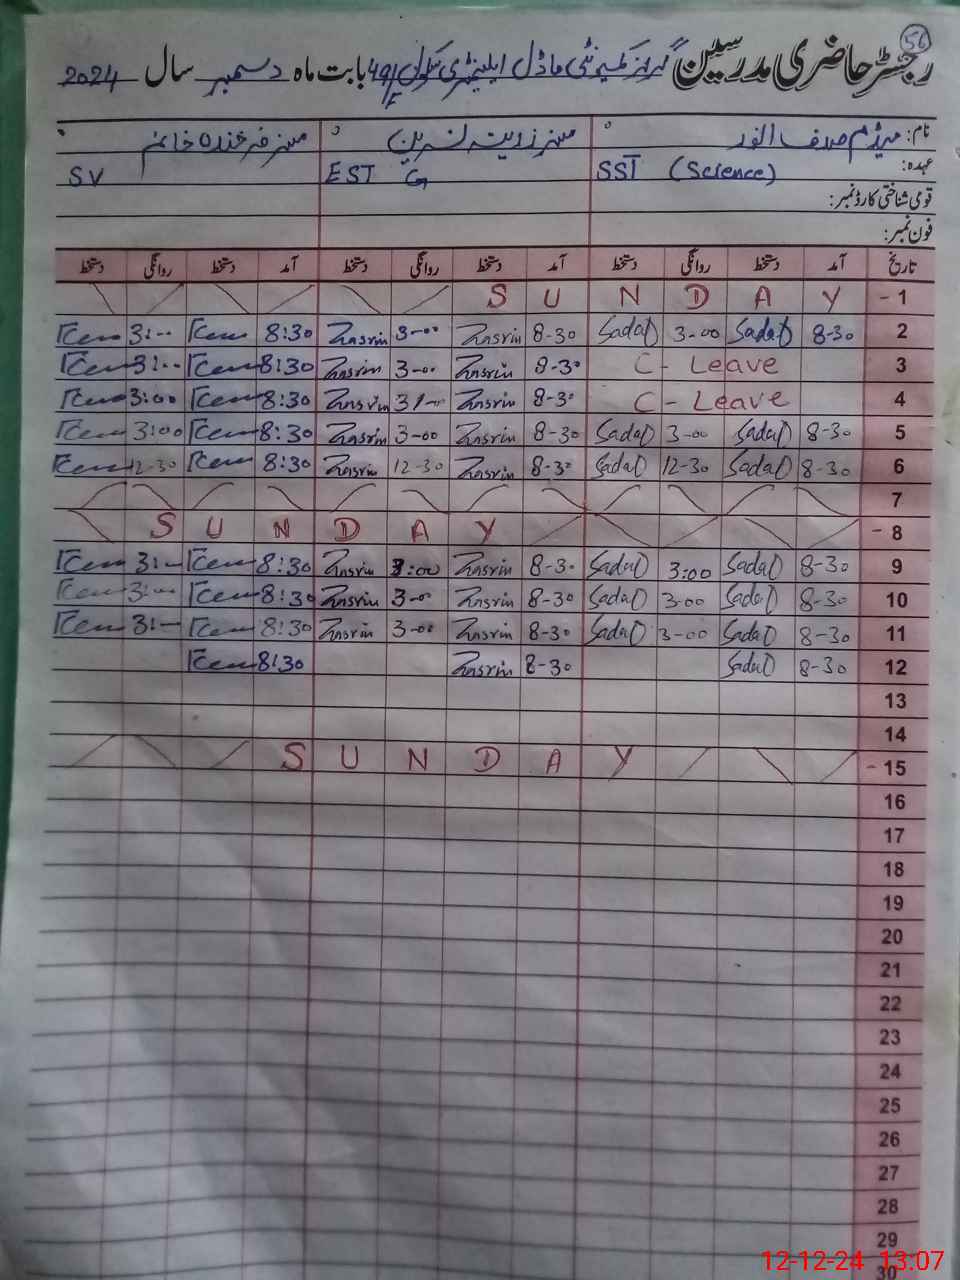 56
رجسٹر حاضری مدرسین گرلز کمیونٹی ماڈل ایلیمنٹری سکول 491/E بابت ماہ دسمبر سال 2024
نام: میڈم صدف انور مسز زرینہ نسرین مسز فرخندہ خانم
عہدہ: SST (Science) EST G SV
قومی شناختی کارڈ نمبر:
فون نمبر:
تاریخ آمد دستخط روانگی دستخط آمد دستخط روانگی دستخط آمد دستخط روانگی دستخط
S U N D A Y - 1
3:00 8:30 Znsrin 3-00 Znsrin 8-30 Sadaf 3-00 Sadaf 8-30 2
3:00 8:30 Znsrin 3-00 Znsrin 8-30 C - Leave 3
3:00 8:30 Znsrin 3:00 Znsrin 8-30 C - Leave 4
3:00 8:30 Znsrin 3-00 Znsrin 8-30 Sadaf 3-00 Sadaf 8-30 5
12-30 8:30 Znsrin 12-30 Znsrin 8-30 Sadaf 12-30 Sadaf 8-30 6
7
S U N D A Y - 8
3:00 8:30 Znsrin 3:00 Znsrin 8-30 Sadaf 3:00 Sadaf 8-30 9
3:00 8:30 Znsrin 3-00 Znsrin 8-30 Sadaf 3-00 Sadaf 8-30 10
3:00 8:30 Znsrin 3-00 Znsrin 8-30 Sadaf 3-00 Sadaf 8-30 11
8:30 Znsrin 8-30 Sadaf 8-30 12
13
14
S U N D A Y - 15
16
17
18
19
20
21
22
23
24
25
26
27
28
29
30
12-12-24 13:07